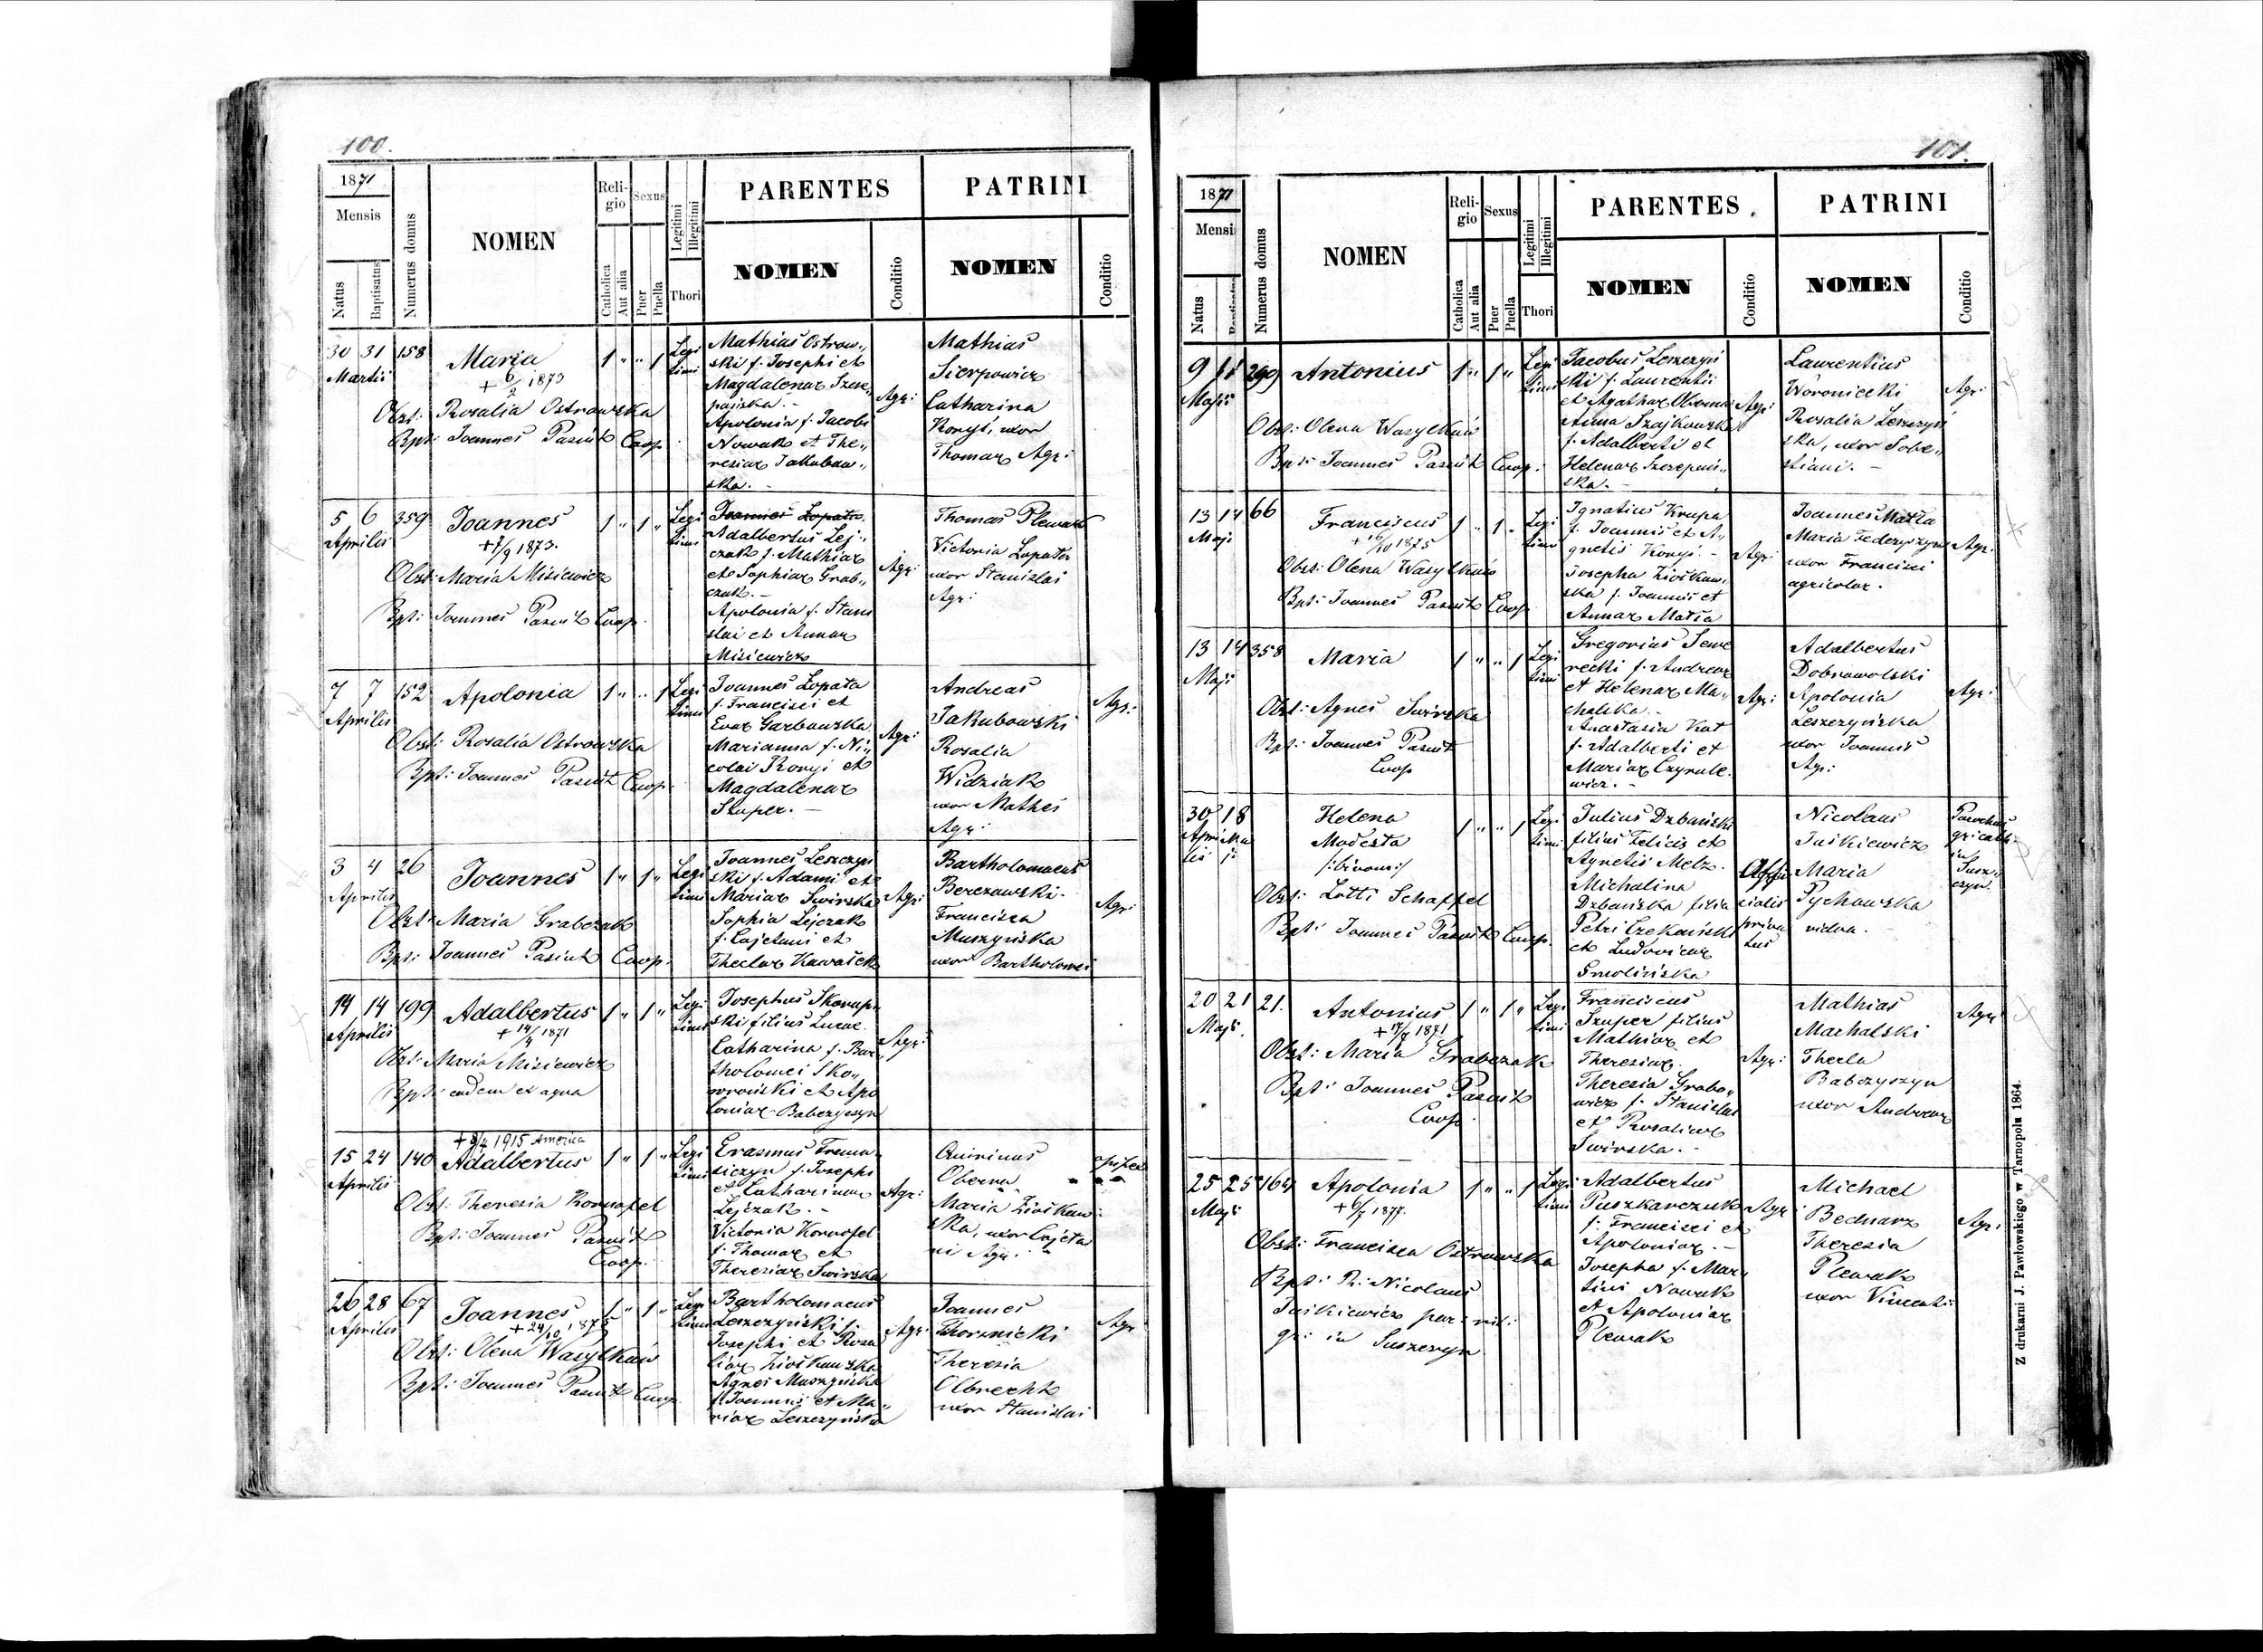 100.
1871
Mensis
Natus
Baptisatus
Numerus domus
NOMEN
Religio
Catholica
Aut alia
Sexus
Puer
Puella
Legitimi
Illegitimi
Thori
PARENTES
NOMEN
Conditio
PATRINI
NOMEN
Conditio
30 31 158
Martii
Maria
+ 6/2 1873
Obst: Rosalia Ostrowska
Bpt: Joannes Pasiut Coop.
1 " " 1
Legi
timi
Mathias Ostrow„
ski f. Josephi et
Magdalenae Szcze„
pańska.-
Apolonia f. Jacobi
Nowak et The„
resiae Jakubow„
ska.-
Agr:
Mathias
Sierpowicz
Catharina
Konyś, uxor
Thomae Agr:
5 6 359
Aprilis
Joannes
+ 7/9 1873.
Obst: Maria Misiewicz
Bpt: Joannes Pasiut Coop.
1 " 1 "
Legi
timi
Joannes Łopata
Adalbertus Lej„
czak f. Mathiae
et Sophiae Grab„
czak.-
Apolonia f. Stani
slai et Annae
Misiewicz
Agr:
Thomas Plewak
Victoria Łopata
uxor Stanislai
Agr:
7 7 152
Aprilis
Apolonia
Obst: Rosalia Ostrowska
Bpt: Joannes Pasiut Coop.
1 " " 1
Legi
timi
Joannes Łopata
f. Francisci et
Evae Garbowska
Marianna f. Ni„
colai Konyś et
Magdalenae
Szuper.-
Agr:
Andreas
Jakubowski
Rosalia
Widziak
uxor Mathei
Agr:
Agr:
3 4 26
Aprilis
Joannes
Obst: Maria Grabczak
Bpt: Joannes Pasiut Coop.
1 " 1 "
Legi
timi
Joannes Leszczyń
ski f. Adami et
Mariae Swirska
Sophia Lejczak
f. Cajetani et
Theclae Kawałek
Agr:
Bartholomaeus
Berezowski.
Francisca
Muszyńska
uxor Bartholomei
Agr:
14 14 199
Aprilis
Adalbertus
+ 14/4 1871
Obst: Maria Misiewicz
Bpt: eadem ex aqua
1 " 1 "
Legi
timi
Josephus Skorup„
ski filius Lucae
Catharina f. Bar
tholomei Sko„
woroński et Apo
loniae Babczyszyn
Agr:
15 24 140
Aprilis
+ 1915 America
Adalbertus
Obst: Theresia Kornofel
Bpt: Joannes Pasiut
Coop.
1 " 1 "
Legi
timi
Erasmus
f. Josephi
et Catharinae
Lejczak.-
Victoria Kornofel
f. Thomae et
Theresiae Swirska
Agr:
Quirinus
Oberna
Maria Ziołkow
ska, uxor Cajeta
ni Agr:
opifex
26 28 67
Aprilis
Joannes
+ 24/10 1875
Obst: Olena Wasylków
Bpt: Joannes Pasiut Coop.
1 " 1 "
Legi
timi
Bartholomaeus
Leszczyński f.
Josephi et Rosa
liae Ziołkowska
Agnes Muszyńska
f. Joannis et Ma„
riae Leszczyńska
Agr:
Joannes
Thorznicki
Theresia
Olbrecht
uxor Stanislai
Agr
101.
1871
Mensi
Natus
Numerus domus
NOMEN
Religio
Catholica
Aut alia
Sexus
Puer
Puella
Legitimi
Illegitimi
Thori
PARENTES.
NOMEN
Conditio
PATRINI
NOMEN
Conditio
9 11 299
Maji
Antonius
Obst: Olena Wasylków
Bpt: Joannes Pasiut Coop.
1 " 1 "
Legi
timi
Jacobus Leszczyń
ski f. Laurentii
et Agathae Oberna
Anna Szajkowska
f. Adalberti et
Helenae Szczepań„
ska.-
Agr:
Laurentius
Woroniecki
Rosalia Leszczyń
ska, uxor Seba„
stiani.-
Agr:
13 14 66
Maji
Franciscus
+ 16/10 1875
Obst: Olena Wasylków
Bpt: Joannes Pasiut Coop.
1 " 1 "
Legi
timi
Ignatius Krupa
f. Joannis et A„
gnetis Konyś.-
Josepha Ziołkow„
ska f. Joannis et
Annae Matła
Agr:
Joannes Matła
Maria Federyszyn
uxor Francisci
agricolae.
Agr:
13 14 358
Maji
Maria
Obst: Agnes Swirska
Bpt: Joannes Pasiut
Coop
1 " " 1
Legi
timi
Gregorius Sewe
recki f. Andreae
et Helenae Ma„
chalska.-
Anastasia Kat
f. Adalberti et
Mariae Czyrule
wicz.-
Agr:
Adalbertus
Dobrowolski
Apolonia
Leszczyńska
uxor Joannis
Agr:
Agr:
30 18
Apri Ma
lis ji
Helena
Modesta
/:binom:/
Obst: Lotti Schaffel
Bpt: Joannes Pasiut Coop.
1 " " 1
Legi
timi
Julius Dzbański
filius Felicis et
Agnetis Metz.
Michalina
Dzbańska filia
Petri Czekański
et Ludovicae
Smolińska
Offi
cialis
priva
tus
Nicolaus
Juśkiewicz
Maria
Pychowska
vidua.
Parochus
gr: cath:
in
Susz„
czyn
20 21 21.
Maji.
Antonius
+ 17/7 1871
Obst: Maria Grabczak
Bpt: Joannes Pasiut
Coop.
1 " 1 "
Legi
timi
Franciscus
Szuper filius
Mathiae et
Theresiae.
Theresia Grabo„
wicz f. Stanislai
et Rosaliae
Swirska.-
Agr:
Mathias
Machalski
Thecla
Babczyszyn
uxor Andreae
Agr:
25 25 164
Maji
Apolonia
+ 6/7 1877.
Obst: Francisca Ostrowska
Bpt: R: Nicolaus
Juśkiewicz par:
gr: in Suszczyn
1 " " 1
Legi
timi
Adalbertus
Puszkarczuk
f. Francisci et
Apoloniae.-
Josepha f. Mar„
tini Nowak
et Apoloniae
Plewak
Agr:
Michael
Bednarz
Theresia
Plewak
uxor Vincenti
Agr:
Z drukarni J. Pawłowskiego w Tarnopolu 1864.